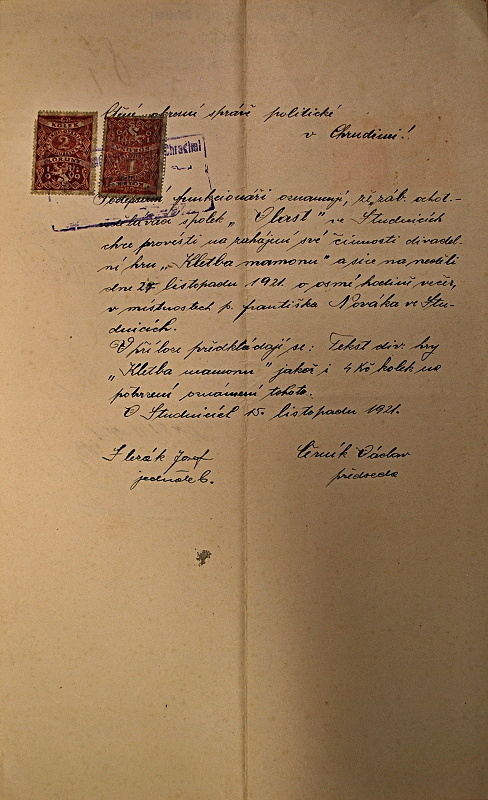 Ctěné okresní správě politické
v Chrudimi!
Chrudimi
2
1
Podepsaní funkcionáři oznamují, že záb. ochot.-
vzdělávací spolek „Vlast" ve Studnicích
chce provésti na zahájení své činnosti divadel-
ní hru „Kletba mamonu" a sice na neděli
dne 27 listopadu 1921 o osmé hodině večer,
v místnostech p. Františka Nováka ve Stu-
dnicích.
V příloze předkládají se: Tekst div. hry
„Kletba mamonu" jakož i 4 Kč kolek na
potvrzení oznámení tohoto.
V Studnicích 15. listopadu 1921.
Josef
Černík Václav
jednatel.
předseda